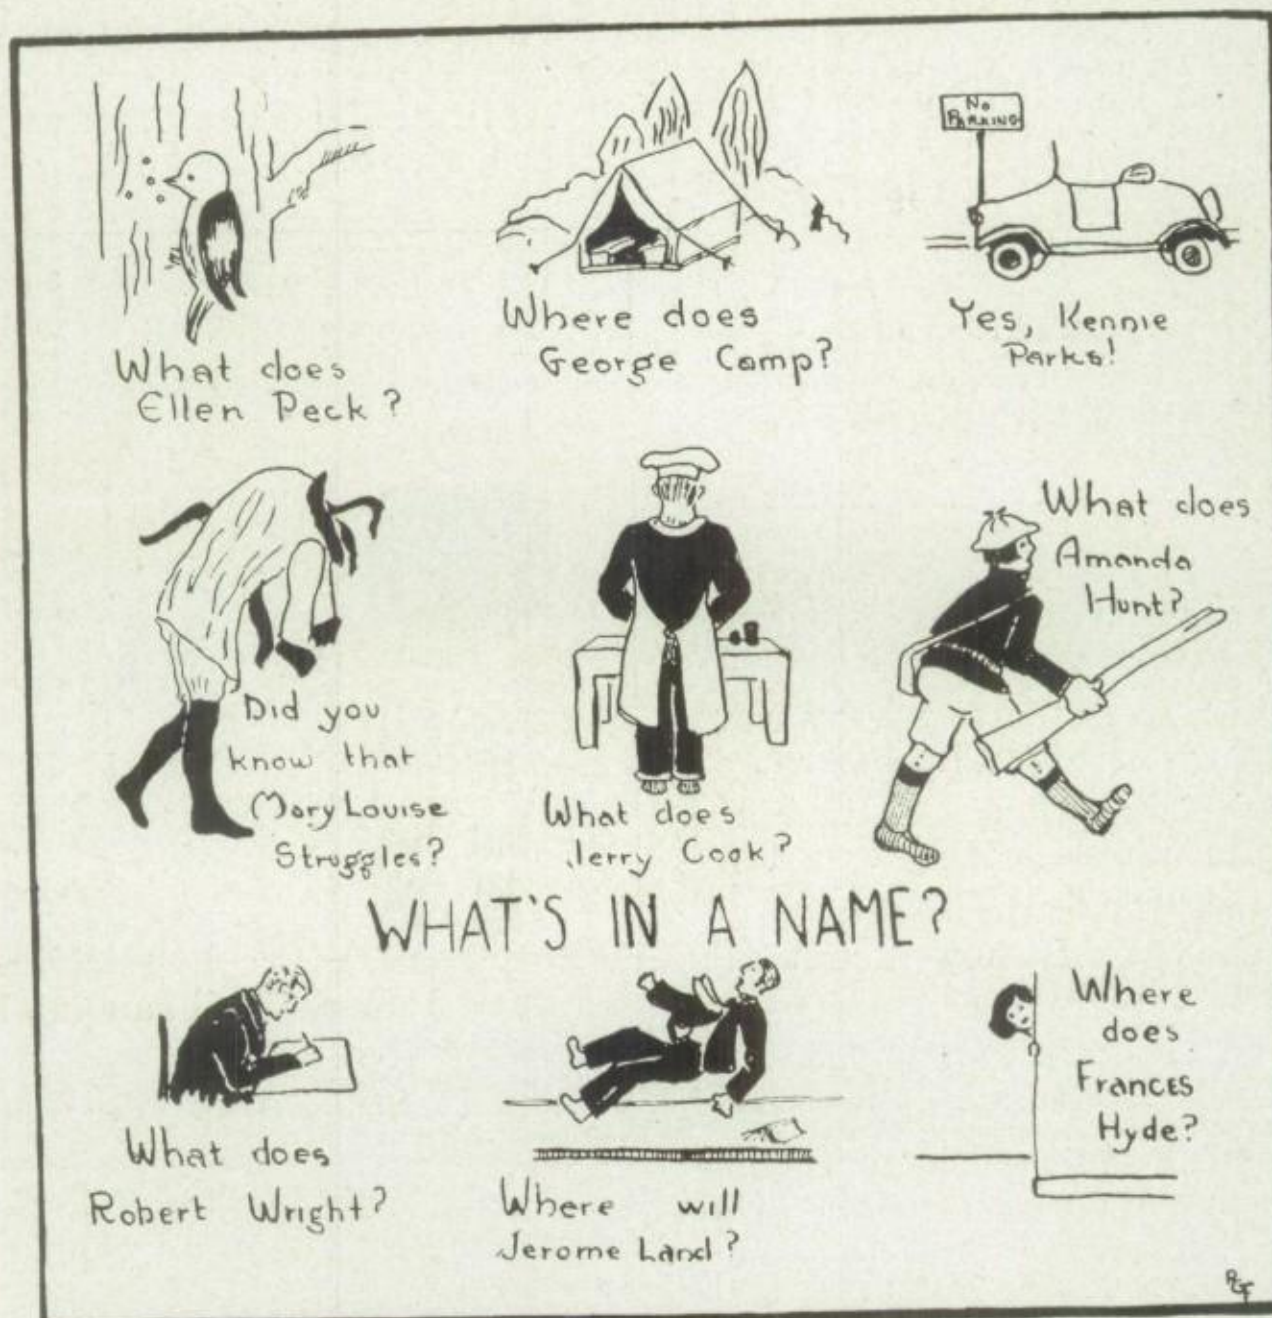 What does
Ellen Peck?
Where does
George Camp?
No
PARKING
Yes, Kennie
Parks!
Did you
know that
Mary Louise
Struggles?
What does
Jerry Cook?
What does
Amanda
Hunt?
WHAT'S IN A NAME?
What does
Robert Wright?
Where will
Jerome Land?
Where
does
Frances
Hyde?